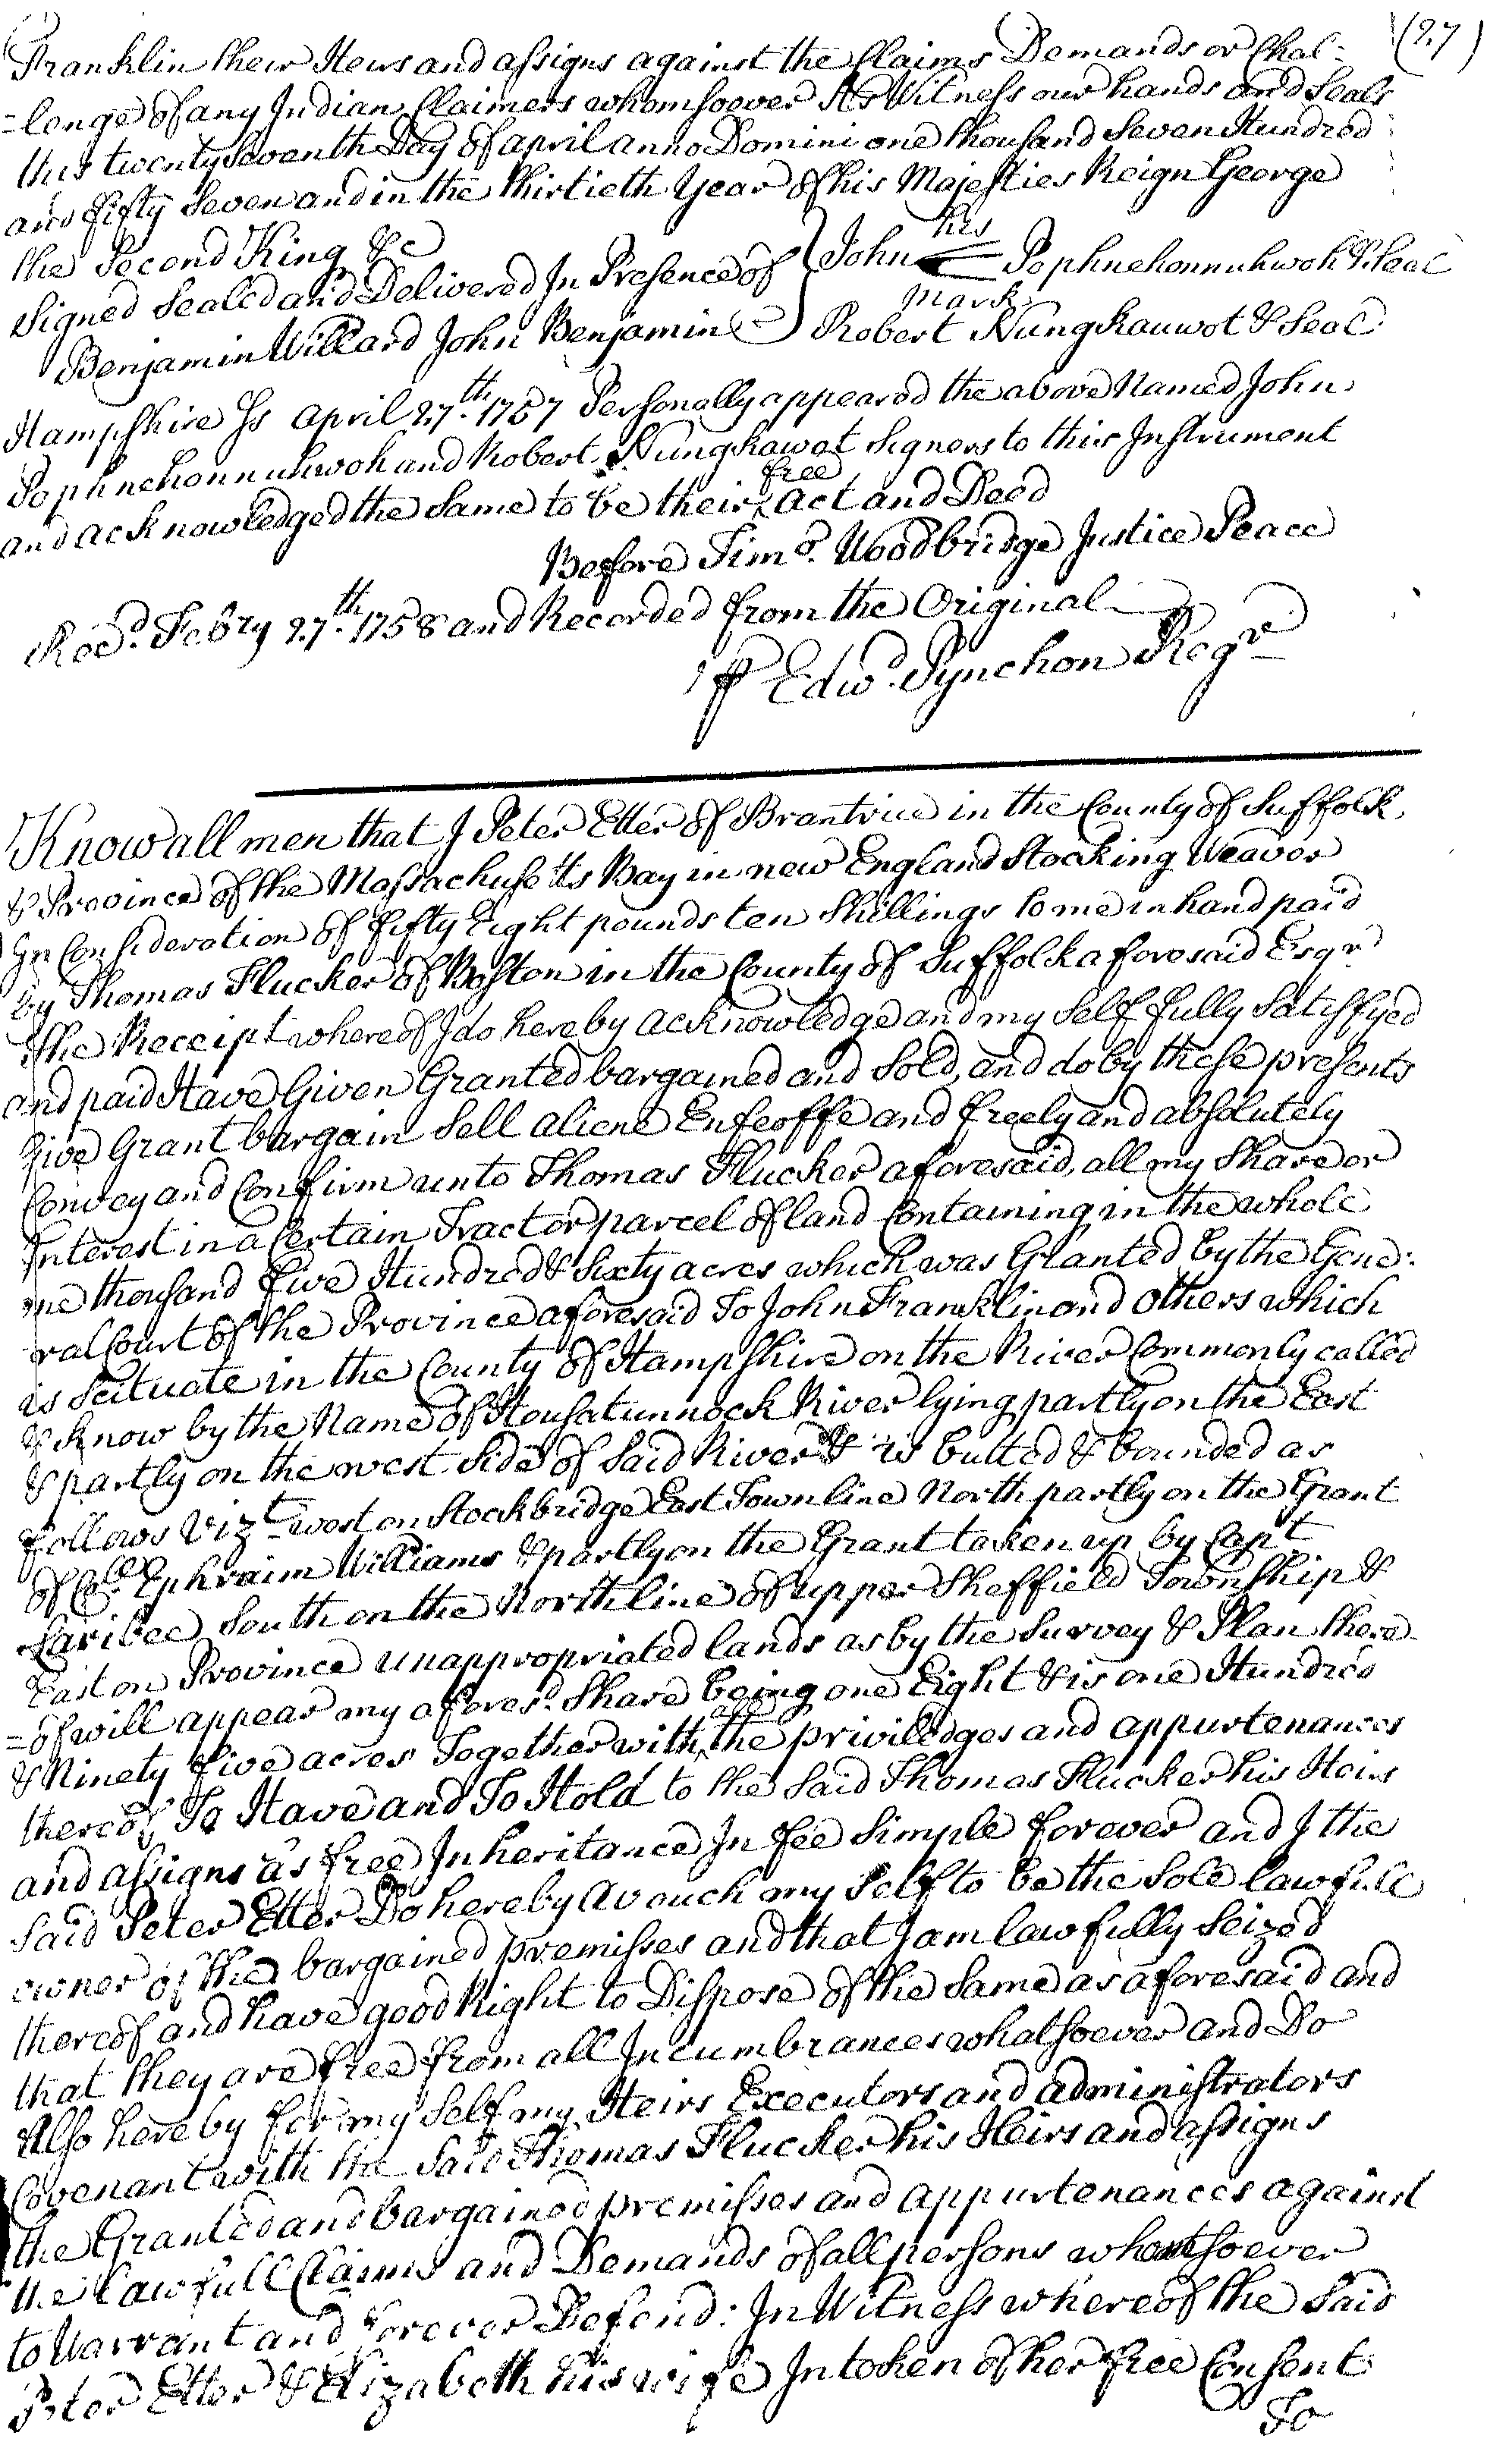 (27)
Franklin their Heirs and assigns against the Claims Demands or Chal-
=lenge of any Indian Claimers whomsoever As Witness our hands and Seals
this twenty Seventh Day of april anno Domini one thousand Seven Hundred
and fifty Seven and in the thirtieth Year of his Majesties Reign George
the Second King &c
Signed Sealed and Delivered In Presence of
Benjamin Willard John Benjamin
his
John Pophnehonnuhwoh & Seal
mark
Robert Nungkauwot & Seal
Hampshire Ss April 27th. 1757 Personally appeared the above Named John
Pophnehonnuhwoh and Robert Nungkawat Signers to this Instrument
and acknowledged the Same to be their free Act and Deed
Before Timo. Woodbridge Justice Peace
Recd. Febry 27th. 1758 and Recorded from the Original
P Edwd. Pynchon Regr
Know all men that I Peter Etter of Brantrice in the County of Suffolk,
& Province of the Massachusetts Bay in new England Stocking Weaver
In Consideration of fifty Eight pounds ten Shillings to me in hand paid
by Thomas Flucker of Boston in the County of Suffolk aforesaid Esqr
the Receipt whereof I do hereby acknowledge and my Self fully Satisfyed
and paid Have Given Granted bargained and Sold, and do by these presents
Give Grant bargain Sell aliene Enfeoffe and freely and absolutely
Convey and Confirm unto Thomas Flucker aforesaid, all my Share or
Interest in a Certain Tract or parcel of land Containing in the whole
one thousand five Hundred & Sixty acres which was Granted by the Gene:
ral Court of the Province aforesaid To John Franklin and others which
is Scituate in the County of Hampshire on the River Commonly called
& know by the Name of Housatunnock River lying partly on the East
& partly on the west Side of Said River & is butted & bounded as
follows Vizt west on Stockbridge East Town line North partly on the Grant
of Coll. Ephraim Williams & partly on the Grant taken up by Capt
Laribee South on the North line of upper Sheffield Township &
East on Province unappropriated lands as by the Survey & Plan there
=of will appear my afores.d Share being one Eight & is one Hundred
& Ninety five acres Together with all the priviledges and appurtenances
thereof To Have and To Hold to the Said Thomas Flucker his Heirs
and assigns as free Inheritance In fee Simple forever and I the
Said Peter Etter Do hereby Avouch my Self to be the Sole lawfull
owner of the bargained premisses and that I am lawfully Seized
thereof and have good Right to Dispose of the Same as aforesaid and
that they are free from all Incumbrances whatsoever and Do
Also hereby for my Self my Heirs Executors and administrators
Covenant with the Said Thomas Flucker his Heirs and assigns
the Granted and bargained premisses and appurtenances against
the lawfull Claims and Demands of all persons whatsoever
to Warrant and forever Defend: In Witness whereof the Said
Peter Etter & Elizabeth his wife In token of her free Consent
To